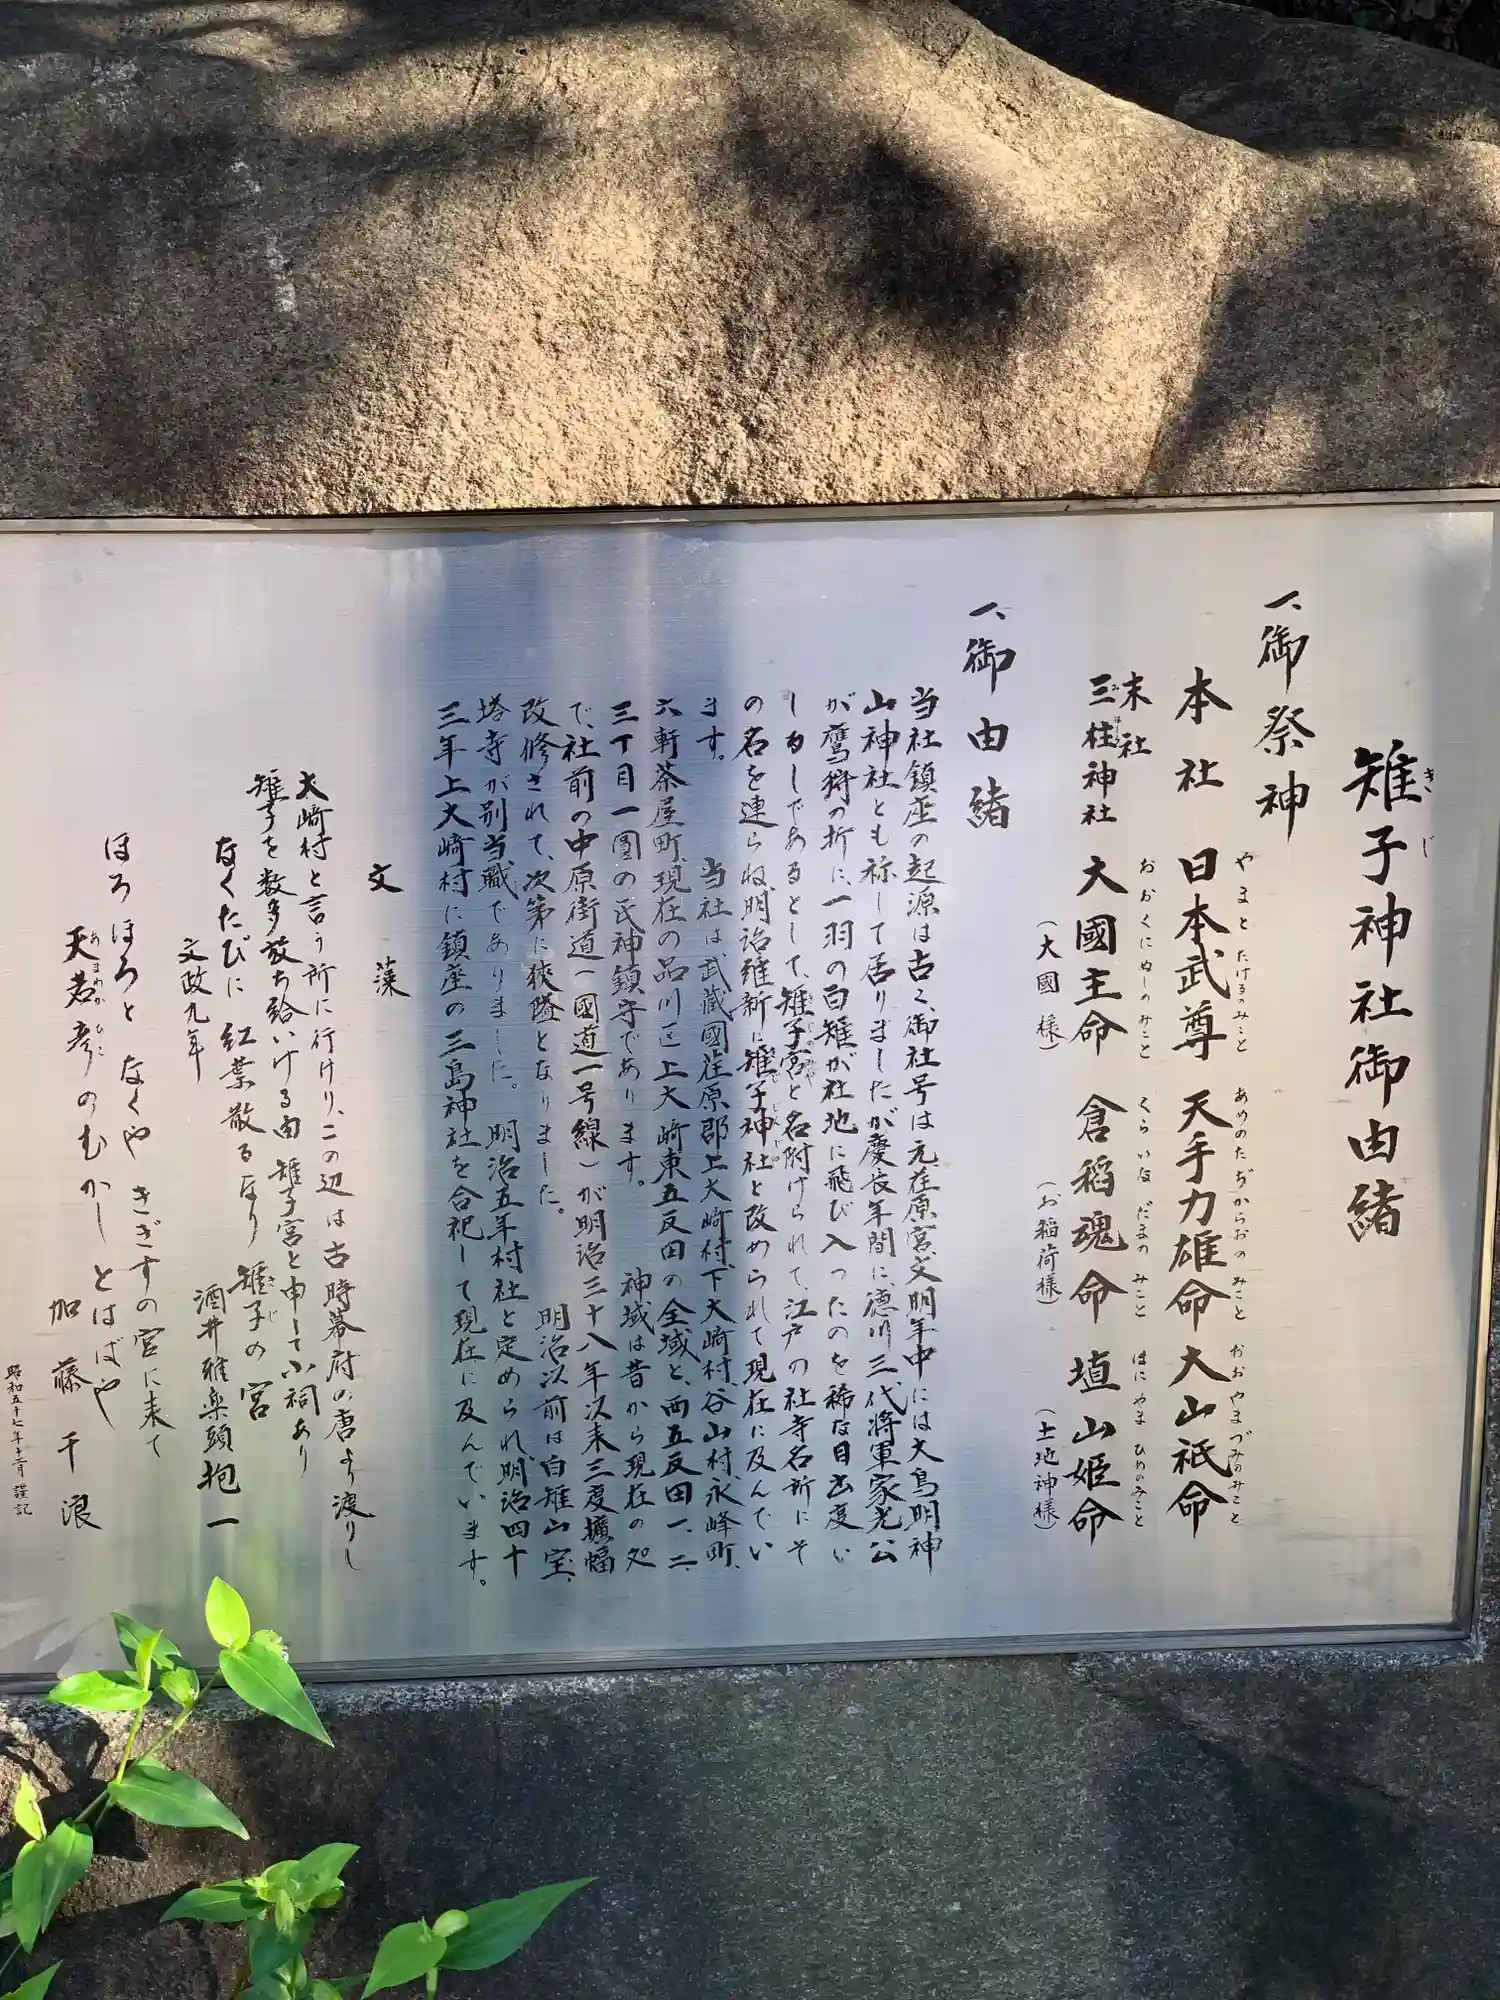 雉子神社御由緒
きじ
一、御祭神
本社 日本武尊 天手力雄命 大山祇命
やまとたけるのみこと あめのたぢからおのみこと おおやまづみのみこと
末社
三柱神社 大國主命 倉稲魂命 埴山姫命
みはしら おおくにぬしのみこと くらいなだまのみこと はにやまひめのみこと
（大國様） （お稲荷様） （土地神様）
一、御由緒
当社鎮座の起源は古く、御社号は元荏原宮、文明年中には大鳥明神
山神社とも称して居りましたが慶長年間に徳川三代将軍家光公
が鷹狩の折に、一羽の白雉が社地に飛び入ったのを稀な目出度い
しるしであるとして、雉子宮と名附けられて、江戸の社寺名所にそ
の名を連らね、明治維新に雉子神社と改められて現在に及んでい
ます。
当社は武蔵國荏原郡上大崎村、下大崎村、谷山村、永峰町、
六軒茶屋町、現在の品川区上大崎東五反田の全域と、西五反田一、二、
三丁目一圓の氏神鎮守であります。
神域は昔から現在の処
で、社前の中原街道（國道一号線）が明治三十八年以来三度擴幅
改修されて、次第に狭隘となりました。
明治以前は白雉山宝
塔寺が別当職でありました。明治五年村社と定められ明治四十
三年上大崎村に鎮座の三島神社を合祀して現在に及んでいます。
文藻
大崎村と言う所に行けり、この辺は古時幕府の唐より渡りし
雉子を数多放ち給いける由 雉子宮と申して小祠あり
なくたびに 紅葉散るなり 雉子の宮
きじ
文政九年 酒井雅楽頭抱一
ほろほろと なくや きぎすの宮に来て
天若彦の むかし とはばや
あまわかひこ
加藤千浪
昭和五十七年十二月 謹記